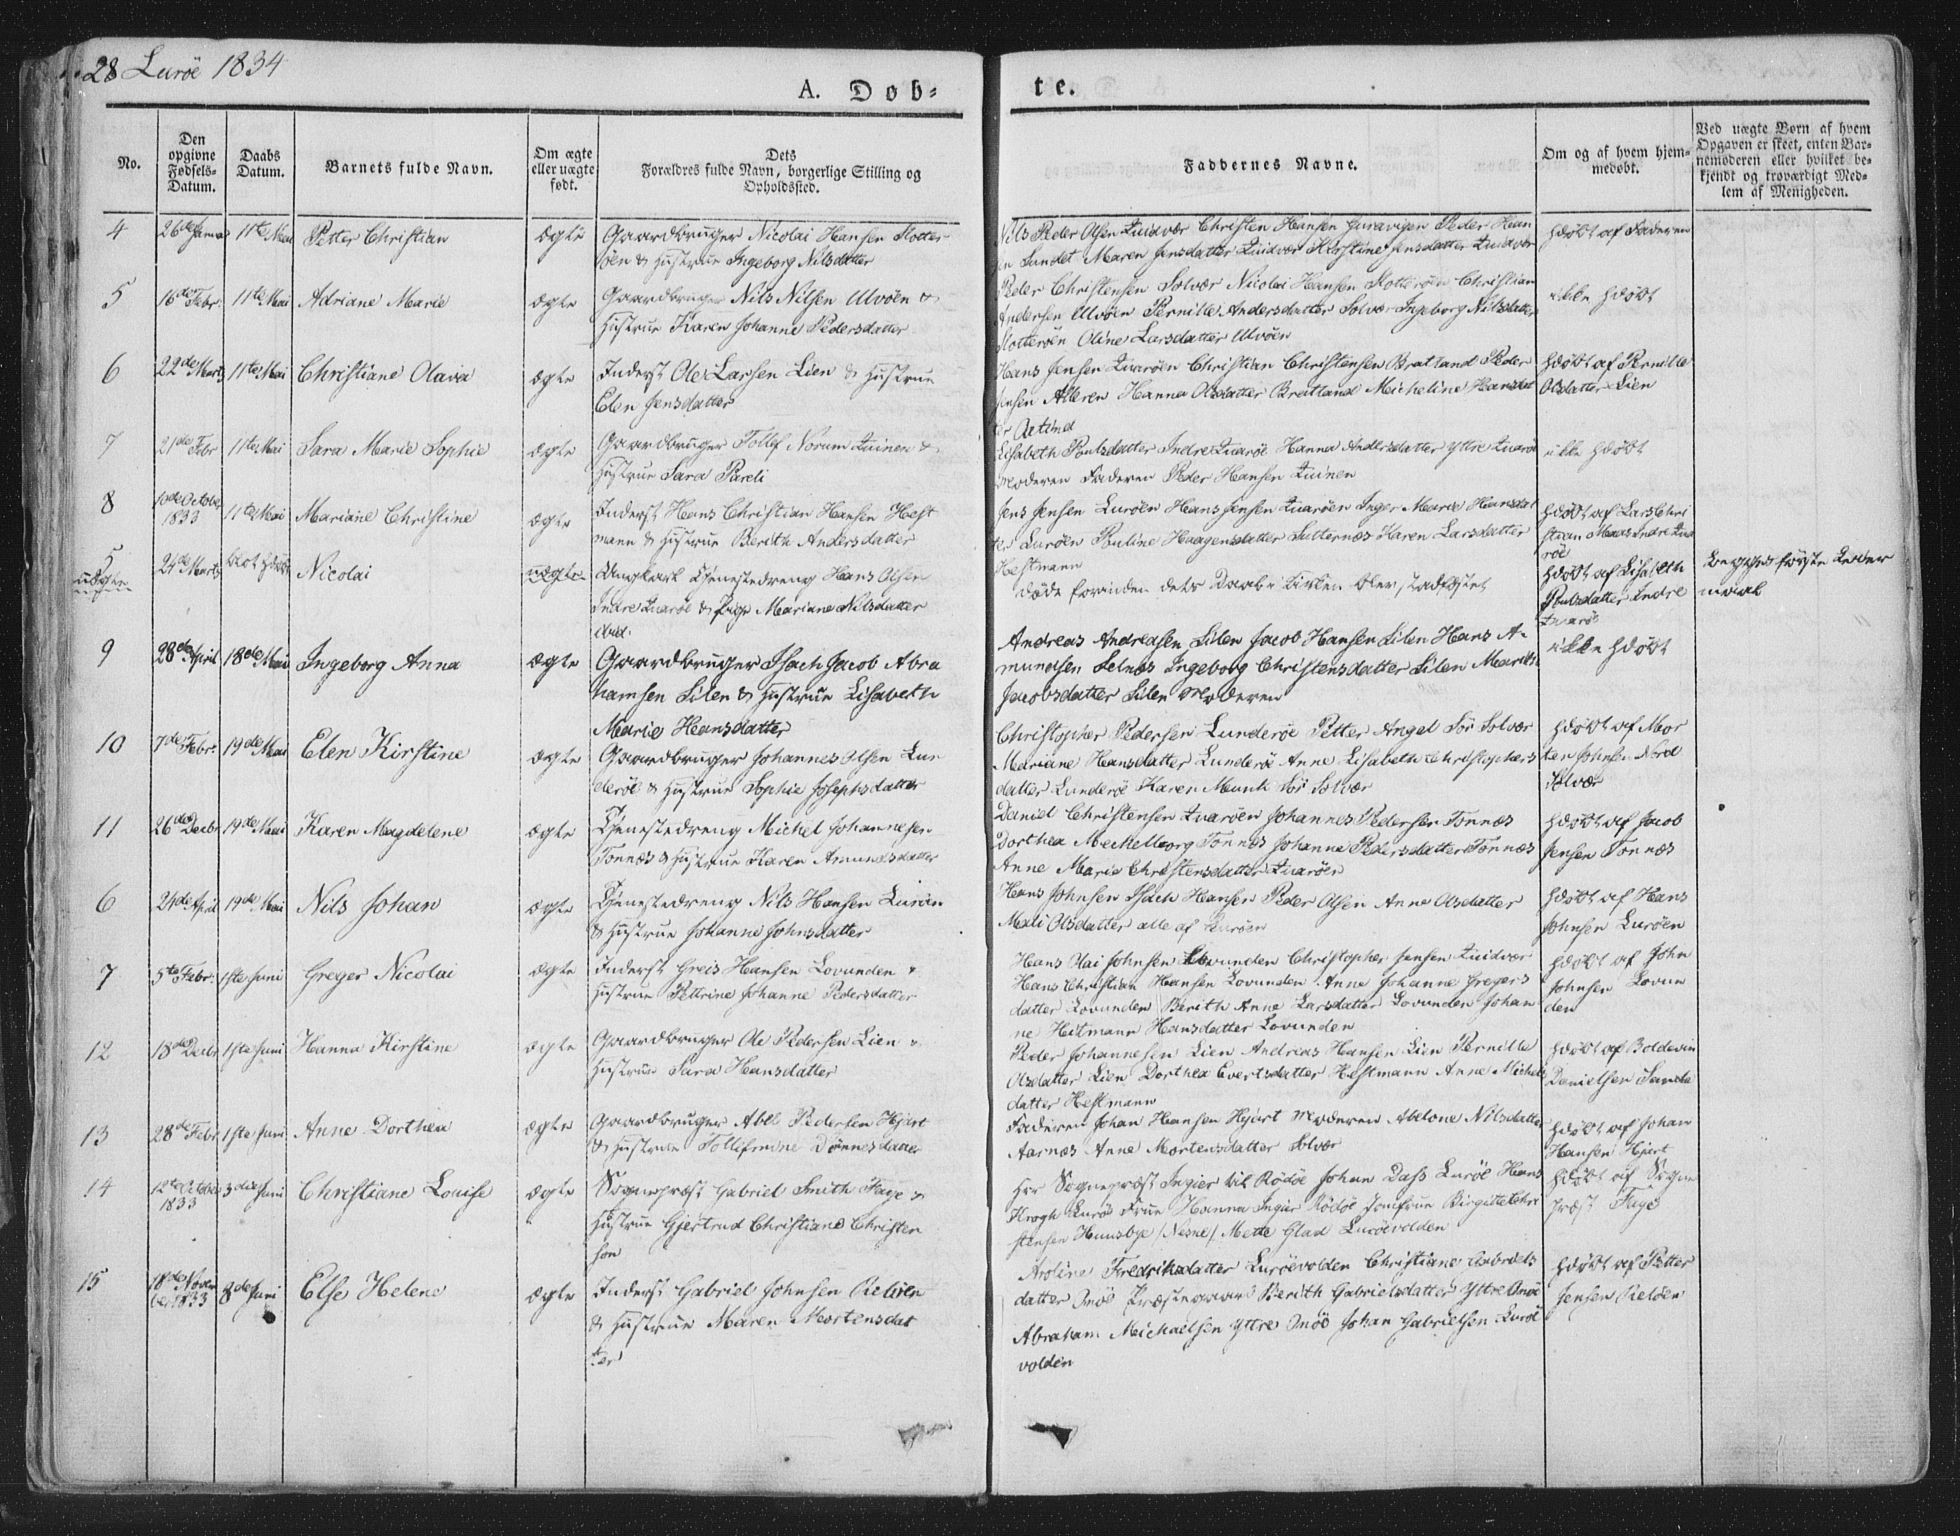 28 Lurøe 1834
A. Dob=
te.
No.
Den opgivne Fødsels-Datum.
Daabs Datum.
Barnets fulde Navn.
Om ægte eller uægte født.
Dets Forældres fulde Navn, borgerlige Stilling og Opholdssted.
Faddernes Navne.
Om og af hvem hjemmedøbt.
Ved uægte Børn af hvem Opgaven er skeet, enten Barnemoderen eller hvilket bekjendt og troværdigt Medlem af Menigheden.
4 26de Janua 11te Mai Petter Christian ægte Gaardbruger Nicolai Hansen Slotter
øen & Hustrue Ingeborg Nilsdatter
Nils Peder Olsen Qvidvær Christen Hansen Peder Han
sen Sundet Maren Jensdatter Qvidvær Kirstine Jensdatter Qvidvær
hdøbt af Faderen
5 16de Febr. 11te Mai Adriane Marie ægte Gaardbruger Nils Nilsen Ulvøen &
Hustrue Karen Johanne Pedersdatter
Peder Christensen Solvær Nicolai Hansen Slotterøen Christian
Andersen Ulvøen Pernille Andersdatter Solvær Ingeborg Nilsdatter
Slotterøen Oline Larsdatter Ulvøen
ikke hdøbt
6 22de Marts 11te Mai Christiane Olava ægte Inderst Ole Larsen Lien & Hustrue
Elen Jensdatter
Hans Jensen Qvarøen Christian Christensen Bratland Peder
Jensen Alleren Hanna Olsdatter Bratland Micheline Hansdat
ter
hdøbt af Pernille
Olsdatter Lien
7 21de Febr 11te Mai Sara Marie Sophie ægte Gaardbruger Tollef Norum Qvinen &
Hustrue Sara Pareli
Lisabeth Poulsdatter Indre Qvarøe Hanna Andersdatter Yttre Qvarøe
Moderen Faderen Peder Hansen Qvinen
ikke hdøbt
8 10de October
1833 11te Mai Mariane Christine ægte Inderst Hans Christian Hansen Hest
mann & Hustrue Berith Andersdatter
Jens Jensen Lurøen Hans Jensen Qvarøen Inger Marie Hansdat
ter Lurøen Pouline Haagensdatter Sutternæs Karen Larsdatter
Hestmann
hdøbt af Lars Chri
stian Maas Indre Qva
røe
5
uægte 24de Marts blot hdøbt Nicolai uægte Ungkarl Tjenestedreng Hans Olsen
Indre Qvarøe & Pige Mariane Nilsdatter
ibid.
døde forinden dets Daab i Kirken blev stadfæstet
hdøbt af Lisabeth
Poulsdatter Indre
Qvarøe
Begges første Leier
maal
9 28de April 18de Mai Ingeborg Anna ægte Gaardbruger Isach Jacob Abra
hamsen Silen & Hustrue Lisabeth
Marie Hansdatter
Andreas Andreasen Silen Jacob Hansen Silen Hans A-
mundsen Selnæs Ingeborg Christensdatter Silen Marith
Jacobsdatter Silen Moderen
ikke hdøbt
10 7de Febr. 19de Mai Elen Kirstine ægte Gaardbruger Johannes Olsen Lun
derøe & Hustrue Sophie Josephsdatter
Christopher Pedersen Lunderøe Petter Angel Sør Solvær
Mariane Hansdatter Lunderøe Anne Lisabeth Christophers
datter Lunderøe Karen Munk Sør Solvær
hdøbt af Mor
ten Johnsen Nord
Solvær
11 26de Decbr 19de Mai Karen Magdelene ægte Tjenestedreng Michel Johannesen
Tonnæs & Hustrue Karen Amundsdatter
Daniel Christensen Qvarøen Johannes Pedersen Tonnæs
Dorthea Meckelborg Tonnæs Johanne Pedersdatter Tonnæs
Anne Marie Christensdatter Qvarøen
hdøbt af Jacob
Jensen Tonnæs
6 24de April 19de Mai Nils Johan ægte Tjenestedreng Nils Hansen Lurøen
& Hustrue Johanne Johnsdatter
Hans Johnsen Isach Hansen Peder Olsen Anne Olsdatter
Mali Olsdatter alle af Lurøen
hdøbt af Hans
Johnsen Lurøen
7 5te Febr. 1ste Juni Greger Nicolai ægte Inderst Greis Hansen Lovunden &
Hustrue Pettrine Johanne Pedersdatter
Hans Olai Johnsen Lovunden Christopher Jensen Qvidvær
Hans Christian Hansen Lovunden Anne Johanne Gregers
datter Lovunden Berith Anne Larsdatter Lovunden Johan
ne Heitmann Hansdatter Lovunden
hdøbt af John
Johnsen Lovun
den
12 18de Decbr 1ste Juni Hanna Kirstine ægte Gaardbruger Ole Pedersen Lien &
Hustrue Sara Hansdatter
Peder Johannesen Lien Andreas Hansen Lien Pernille
Olsdatter Lien Dorthea Evertsdatter Hestmann Anne Michels
datter Hestmann
hdøbt af Boldevin
Danielsen Sande
13 28de Febr. 1ste Juni Anne Dorthea ægte Gaardbruger Abel Pedersen Hjart
& Hustrue Tollefmine Dønnesdatter
Faderen Johan Hansen Hjart Moderen Abelone Nilsdatter
Aarnæs Anne Mortensdatter Solvær
hdøbt af Johan
Hansen Hjart
14 12te October
1833 3die Juni Christiane Louise ægte Sognepræst Gabriel Smith Faye &
Hustrue Gjertrud Christiane Christen
sen
Hr Sognepræst Ingier til Rødøe Johan Dass Lurøe Hans
Krogh Lurøe Frue Hanna Ingier Rødøe Jomfrue Birgitte Chri
stensen Huusbye /Nesne/ Mette Glad Lurøevolden
hdøbt af Sogne
præst Faye
15 18de Novem
ber 1833 8de Juni Else Helene ægte Inderst Gabriel Johnsen Reløen
& Hustrue Maren Mortensdat
ter
Aroline Fredriksdatter Lurøevolden Christiane Gabriels
datter Onøe Præstegaard Berith Gabrielsdatter Yttre Onøe
Abraham Michaelsen Yttre Onøe Johan Gabrielsen Lurøe
volden
hdøbt af Petter
Jensen Reløen